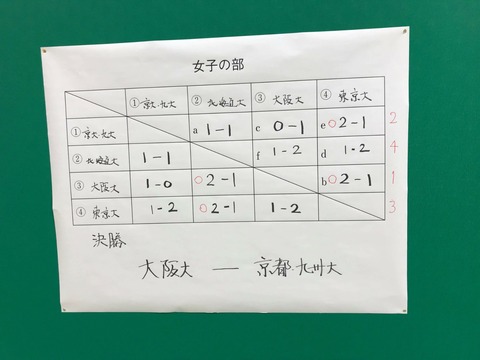 女子の部
① 京大・九大 ② 北海道大 ③ 大阪大 ④ 東京大
① 京大・九大 a 1-1 c 0-1 e ○2-1 2
② 北海道大 1-1 f 1-2 d 1-2 4
③ 大阪大 1-0 ○2-1 b ○2-1 1
④ 東京大 1-2 ○2-1 1-2 3
決勝
大阪大 — 京都・九州大